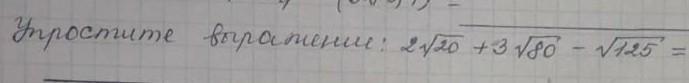 Упростите выражение: 2√20 + 3√80 - √125 =